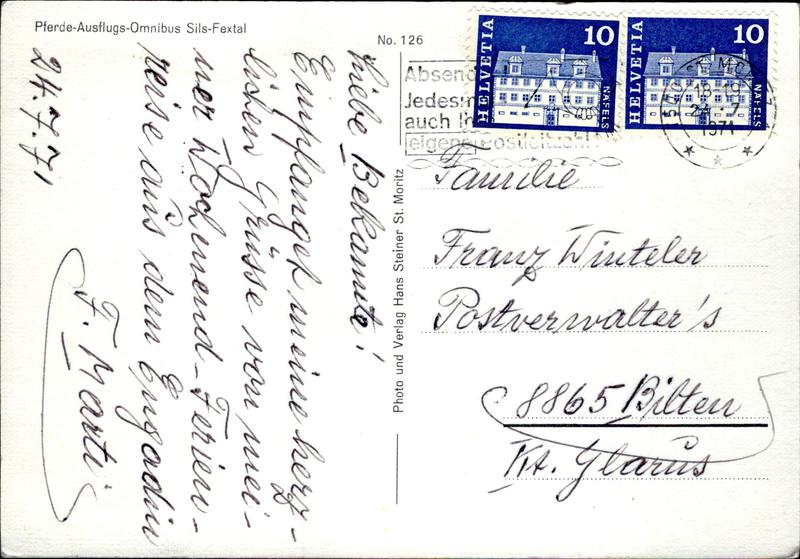 Pferde-Ausflugs-Omnibus Sils-Fextal
No. 126
24.7.71
Liebe Bekannte!
Empfanget meine herz-
lichen Grüsse von mei-
ner Wochenend-Ferien-
reise aus dem Engadin
F. Marti
Photo und Verlag Hans Steiner St. Moritz
HELVETIA
10
NÄFELS
HELVETIA
10
NÄFELS
Absend
Jedesm
auch Ih
eigene Postleitzahl
18-19
24.7.
1971
Familie
Franz Winteler
Postverwalter's
8865 Bilten
Kt. Glarus